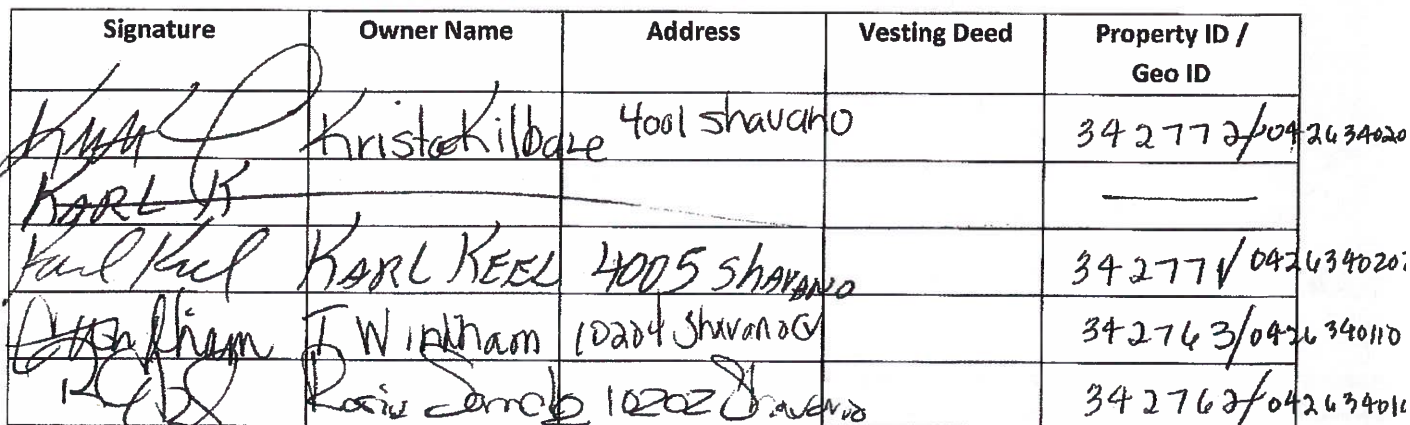 Signature Owner Name Address Vesting Deed Property ID / Geo ID
Krista Kilbane 4001 Shavano 342772/042634020
KARL K
Karl Keel KARL KEEL 4005 Shavano 342771/042634020
T Windham 10204 Shavano 342763/0426340110
10202 Shavano 342762/042634010